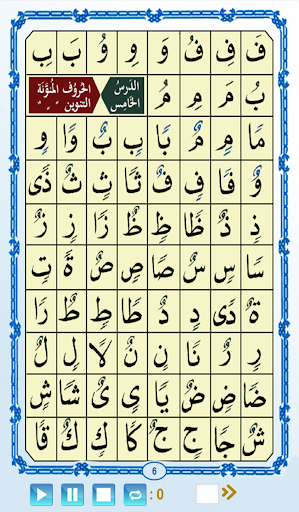 فَ فِ فُ وَ وِ وُ بَ بِ
بُ مَ مِ مُ
الدَرسُ
الخَامِس
الحروُف المُنوَّنَة
التنوين ً ٍ ٌ
مًا مٍ مٌ بًا بٍ بٌ وًا وٍ
وٌ فًا فٍ فٌ ثًا ثٍ ثٌ ذًى
ذٍ ذٌ ظًا ظٍ ظٌ زًا زٍ زٌ
سًا سٍ سٌ صًا صٍ صٌ ةً تٍ
ةٌ دًى دٍ دٌ طًا طٍ طٌ رًا
رٍ رٌ نًا نٍ نٌ لًا لٍ لٌ
ضًا ضٍ ضٌ يًا ىٍ ىٌ شًا شٍ
شٌ جًا جٍ جٌ كًا كٍ كٌ قًا
6
: 0